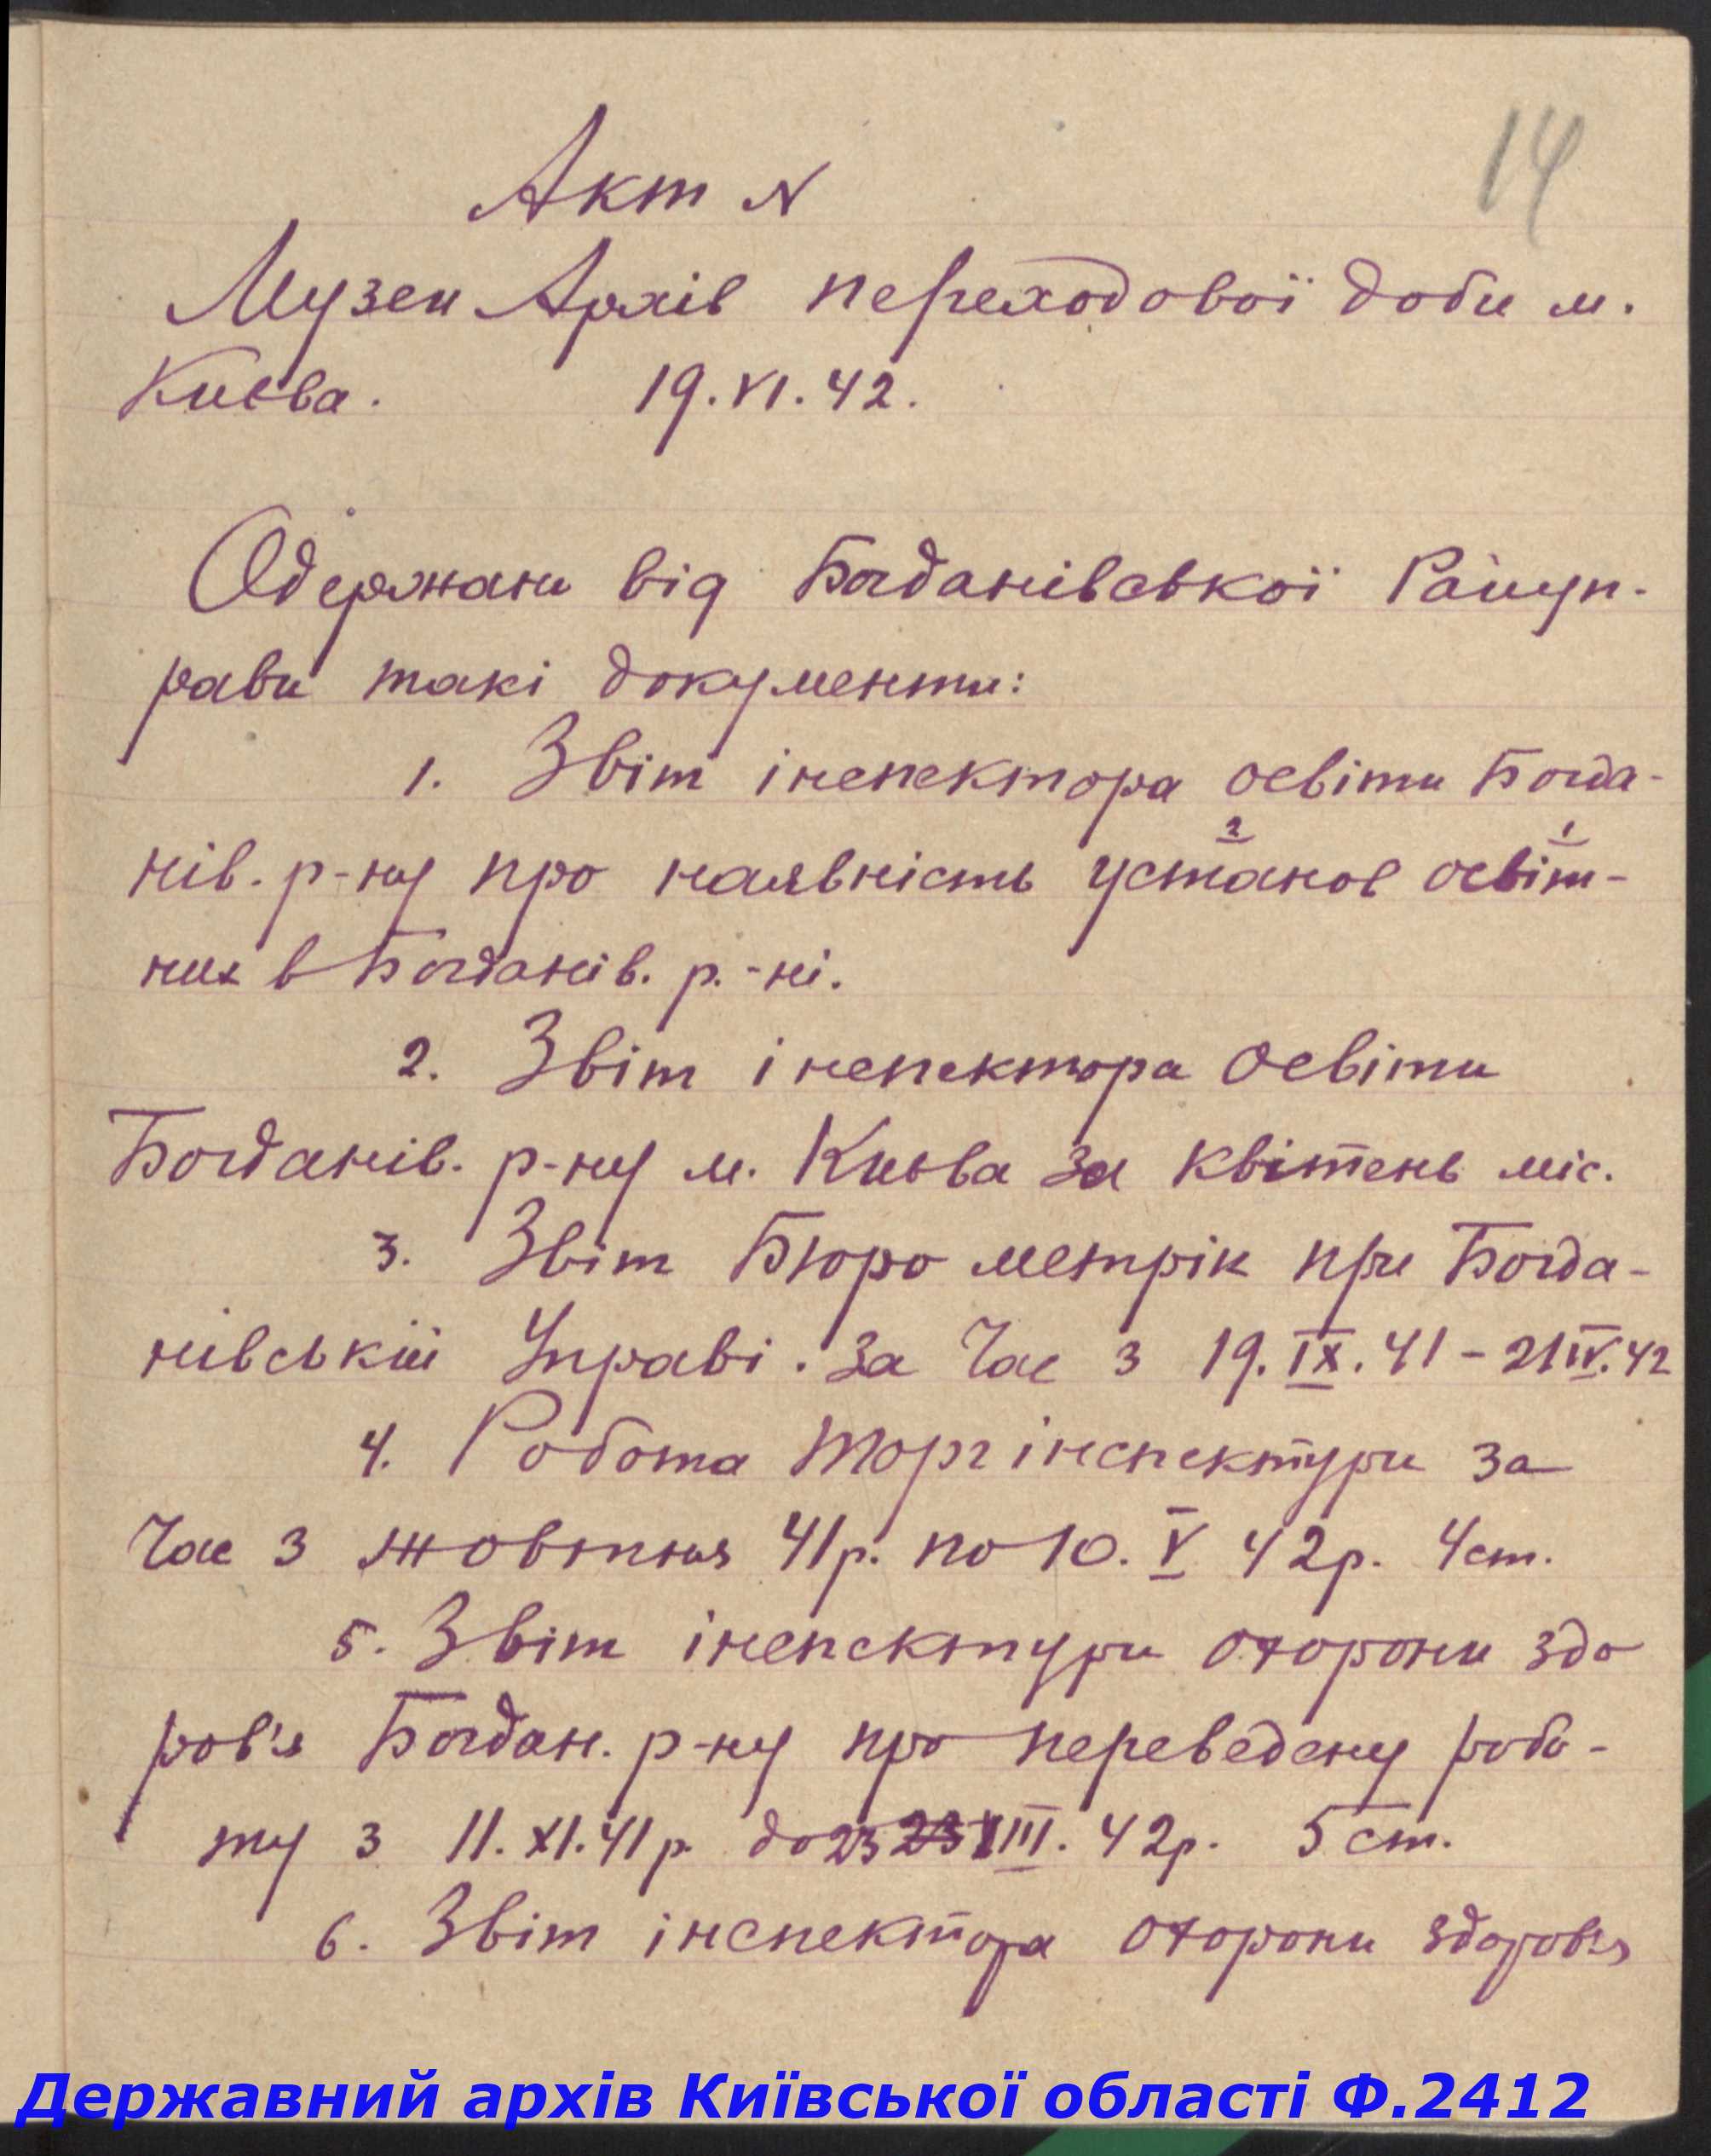 14
Акт N
Музей Архів переходової доби м.
Києва. 19.VI.42.
Одержани від Богданівської Райуп-
рави такі документи:
1. Звіт інспектора освіти Богда-
нів. р-ну про наявність установ освіт-
них в Богданів. р.-ні.
2. Звіт інспектора освіти
Богданів. р-ну м. Києва за квітень міс.
3. Звіт Бюро метрік при Богда-
нівській Управі. за час з 19.IX.41 – 21 IV.42
4. Робота торгінспектури за
час з жовтня 41р. по 10. V 42р. 4 ст.
5. Звіт інспектури охорони здо
ров'я Богдан. р-ну про переведену робо-
ту з 11.XI.41р. до 23 III. 42р. 5 ст.
6. Звіт інспектора охорони здоров'я
Державний архів Київської області Ф.2412